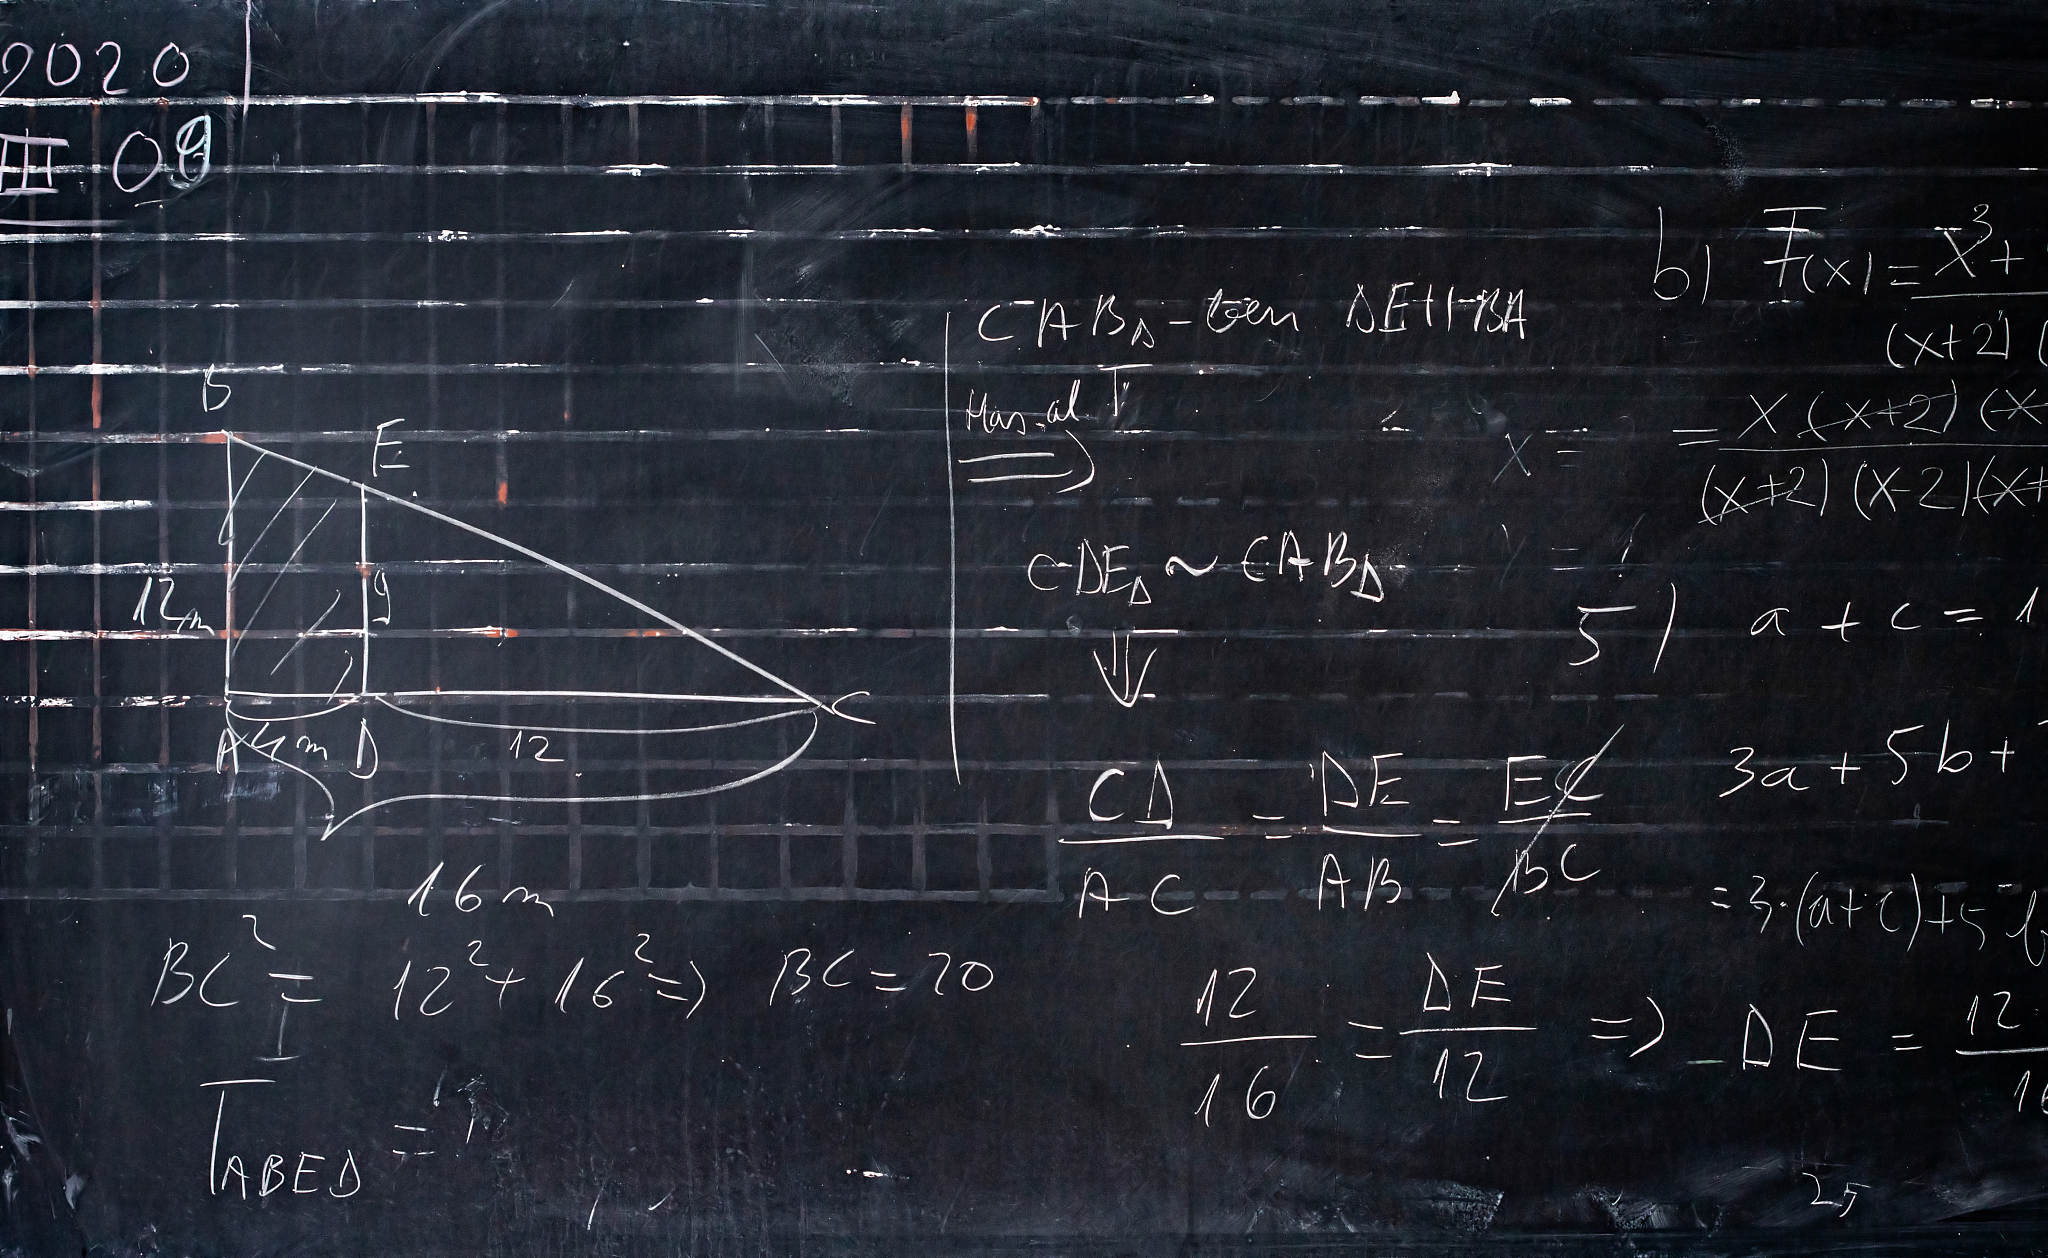 2020
III 09
B
E
12m
9
A 4m D
12
C
16m
BC² = 12² + 16² => BC = 20
T ABED =
CAB△ - ben DE || BA
Has. al. T
=>
CDE△ ~ CAB△
⇓
CD/AC = DE/AB = EC/BC
12/16 = DE/12 => DE = 12·/16
b) F(x) = x³ +
(x+2) (
= x (x+2) (x
(x+2) (x-2) (x+
x =
5) a + c = 1
3a + 5b +
= 3·(a+c) + 5 b
25